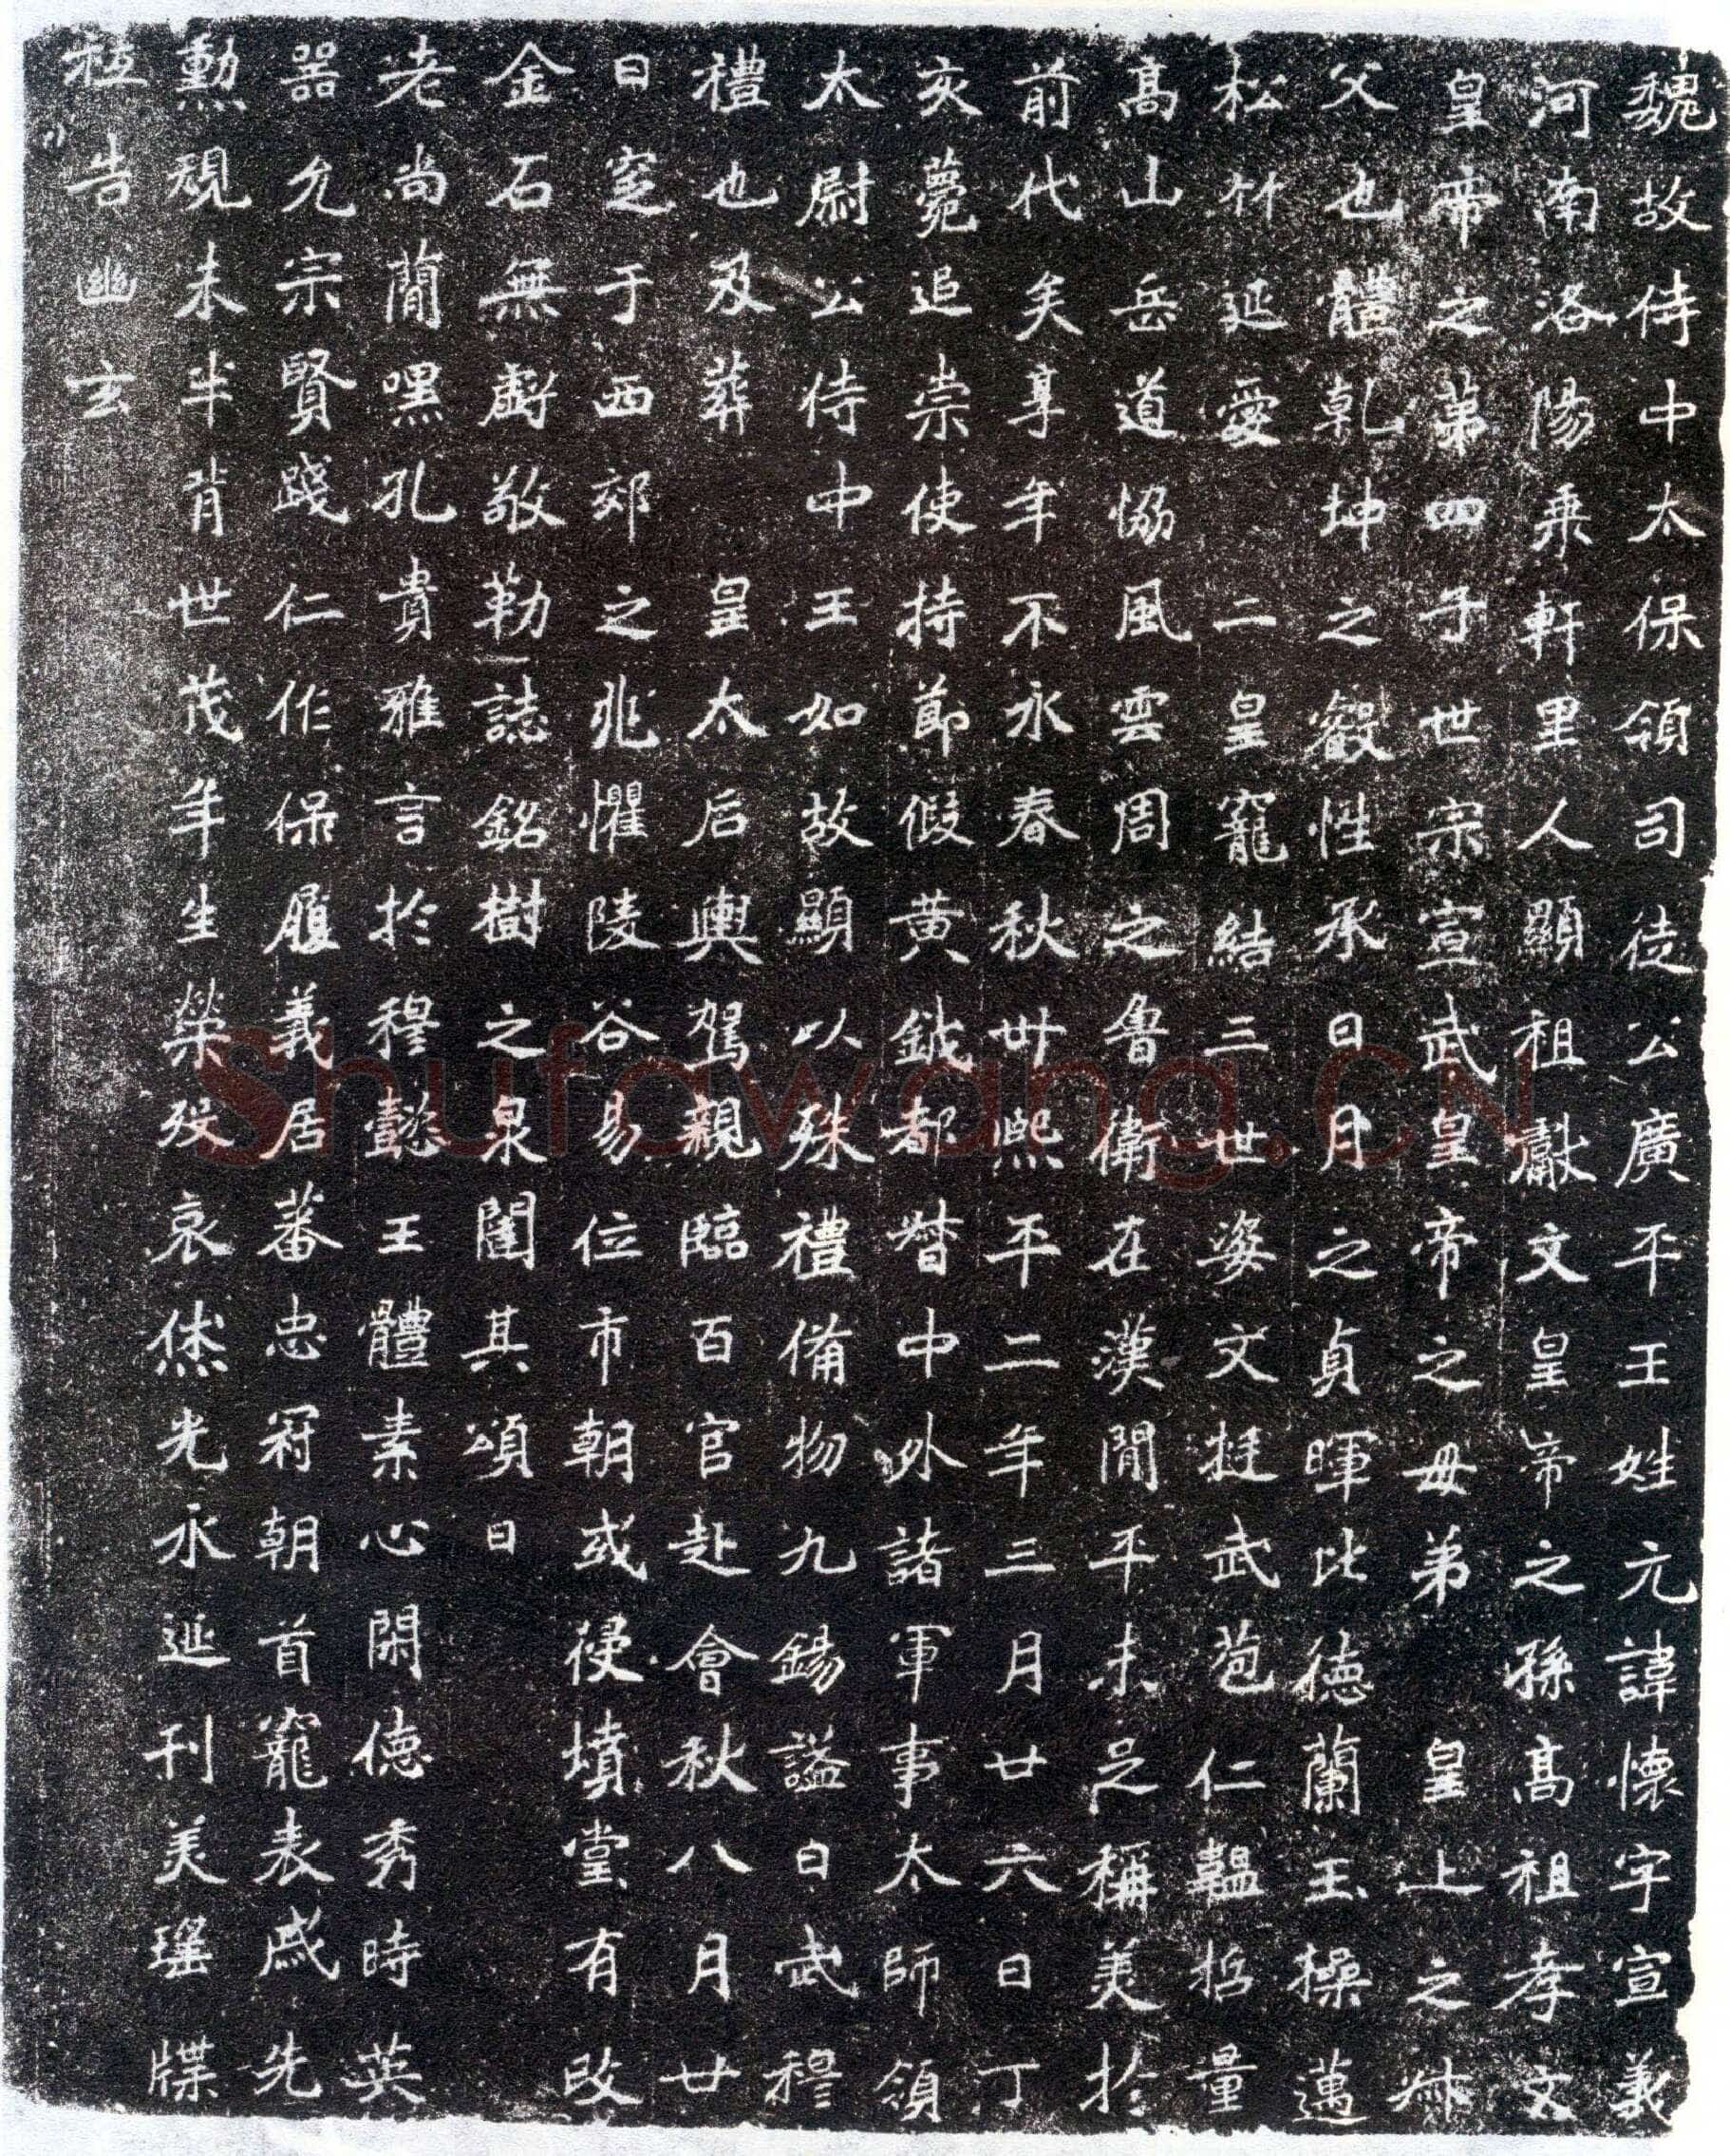 魏故侍中太保領司徒公廣平王姓元諱懷字宣義
河南洛陽乗軒里人顯祖獻文皇帝之孫髙祖孝文
皇帝之第四子世宗宣武皇帝之母弟皇上之叔
父也體乹坤之叡性承日月之貞暉比徳蘭玉操邁
松竹延愛二皇寵結三世姿文挺武苞仁韞哲量
髙山岳道協風雲周之魯衛在漢閒平未足稱美於
前代矣享年不永春秋卅熈平二年三月廿六日丁
亥薨追崇使持節假黄鉞都督中外諸軍事太師領
太尉公侍中王如故顯以殊禮備物九錫謚曰武穆
禮也及葬皇太后輿駕親臨百官赴會秋八月廿
日窆于西郊之兆懼陵谷易位市朝或侵墳堂有改
金石無虧敬勒誌銘樹之泉闥其頌曰
老尚簡嘿孔貴雅言於穆懿王體素心閑徳秀時英
器允宗賢踐仁作保履義居蕃忠冠朝首寵表戚先
勲規未半背世茂年生榮殁哀休光永延刊美瑶牒
祗告幽玄
Shufawang.CN